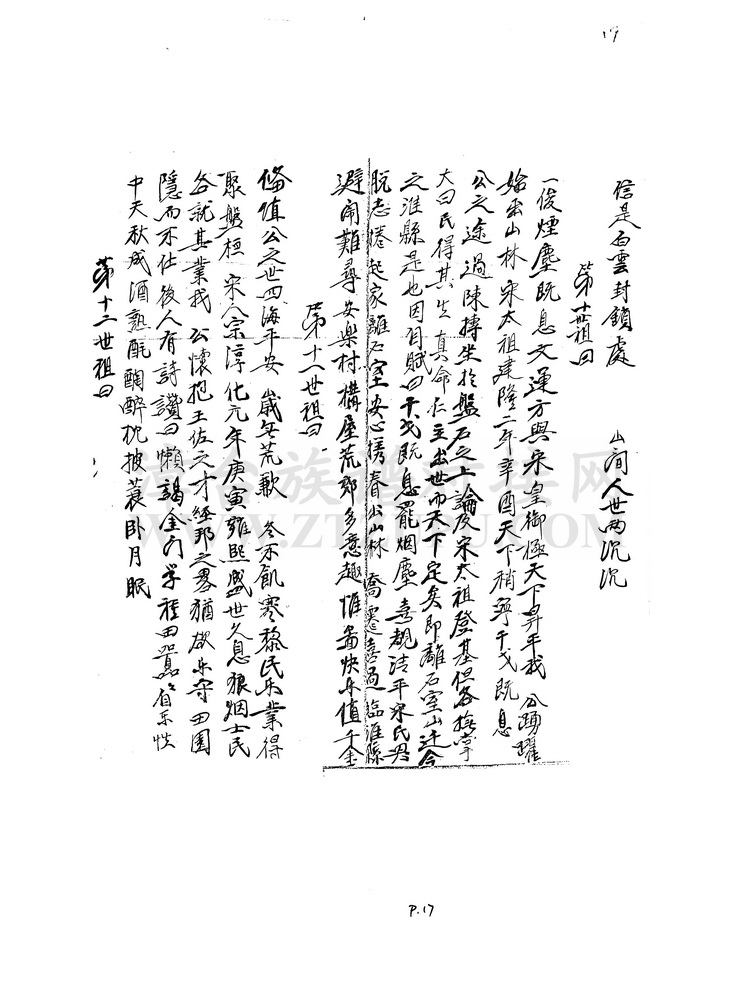 19
信是白雲封鎖處 山间人世两沉沉
第十世祖曰
一俊煙塵既息文運方興宋皇御極天下昇平我公踴躍
始出山林宋太祖建隆二年辛酉天下稍寧干戈既息
公之途過陳摶坐於盤石之上論及宋太祖登基但各撫掌
大曰民得其生真命仁主出世而天下定矣即離石室山迁今
之淮縣是也因自賦曰干戈既息罷烟塵喜覩清平宋氏君
脫志捲起家離石室安心携眷出山林喬遷喜過臨淮縣
避闹難尋安樂村構屋荒郊多意趣惟啚快乐值千金
第十一世祖曰
脩值公之世四海平安歲无荒歉冬不飢寒黎民乐業得
聚盤桓宋太宗淳化元年庚寅雍熙盛世久息狼烟士民
各就其業我公懷抱王佐之才經邦之畧猶欲乐守田園
隱而不仕後人有詩讚曰懶謁金门学種田嚣々自乐性
中天秋成酒熟酩酊醉枕披蓑卧月眠
第十二世祖曰
P.17
WWW.ZT